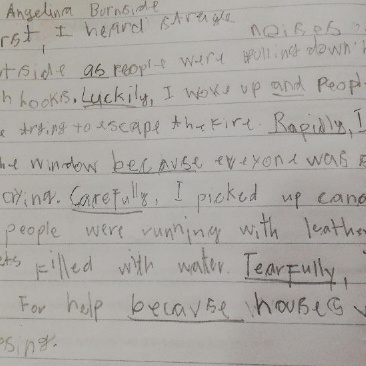 Angelina Burnside
rst, I heard strange noises
tside as people were pulling down
h hooks. Luckily, I woke up and Peopl
e trying to escape the fire. Rapidly, I
he window because everyone was
crying. Carefully, I picked up
people were running with leathe
ets filled with water. Tearfully,
For help because houses